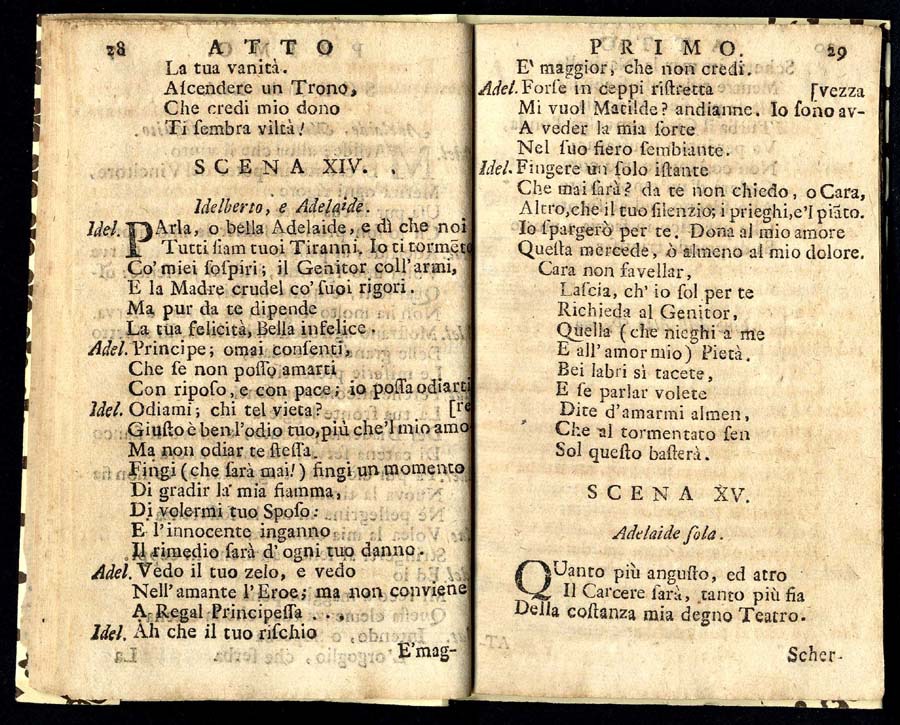 28 ATTO
La tua vanità.
Aſcendere un Trono,
Che credi mio dono
Ti ſembra viltà!
SCENA XIV.
Idelberto, e Adelaide.
Idel. PArla, o bella Adelaide, e dì che noi
Tutti ſiam tuoi Tiranni. Io ti tormēto
Co' miei ſoſpiri; il Genitor coll'armi,
E la Madre crudel co' ſuoi rigori.
Ma pur da te dipende
La tua felicità, Bella infelice.
Adel. Principe; omai conſenti,
Che ſe non poſſo amarti
Con ripoſo, e con pace; io poſſa odiarti
Idel. Odiami; chi tel vieta? [re
Giuſto è ben l'odio tuo, più che'l mio amo
Ma non odiar te ſteſſa.
Fingi (che ſarà mai!) fingi un momento
Di gradir la mia fiamma,
Di volermi tuo Spoſo:
E l'innocente inganno
Il rimedio ſarà d'ogni tuo danno.
Adel. Vedo il tuo zelo, e vedo
Nell'amante l'Eroe; ma non conviene
A Regal Principeſſa ....
Idel. Ah che il tuo riſchio
E'mag-
PRIMO. 29
E' maggior, che non credi.
Adel. Forſe in ceppi riſtretta [vezza
Mi vuol Matilde? andianne. Io ſono av-
A veder la mia ſorte
Nel ſuo fiero ſembiante.
Idel. Fingere un ſolo iſtante
Che mai ſarà? da te non chiedo, o Cara,
Altro, che il tuo ſilenzio; i prieghi, e'l piāto.
Io ſpargerò per te. Dona al mio amore
Queſta mercede, ò almeno al mio dolore.
Cara non favellar,
Laſcia, ch' io ſol per te
Richieda al Genitor,
Quella (che nieghi a me
E all'amor mio) Pietà.
Bei labri sì tacete,
E ſe parlar volete
Dite d'amarmi almen,
Che al tormentato ſen
Sol queſto baſterà.
SCENA XV.
Adelaide ſola.
QUanto più anguſto, ed atro
Il Carcere ſarà, tanto più fia
Della coſtanza mia degno Teatro.
Scher-